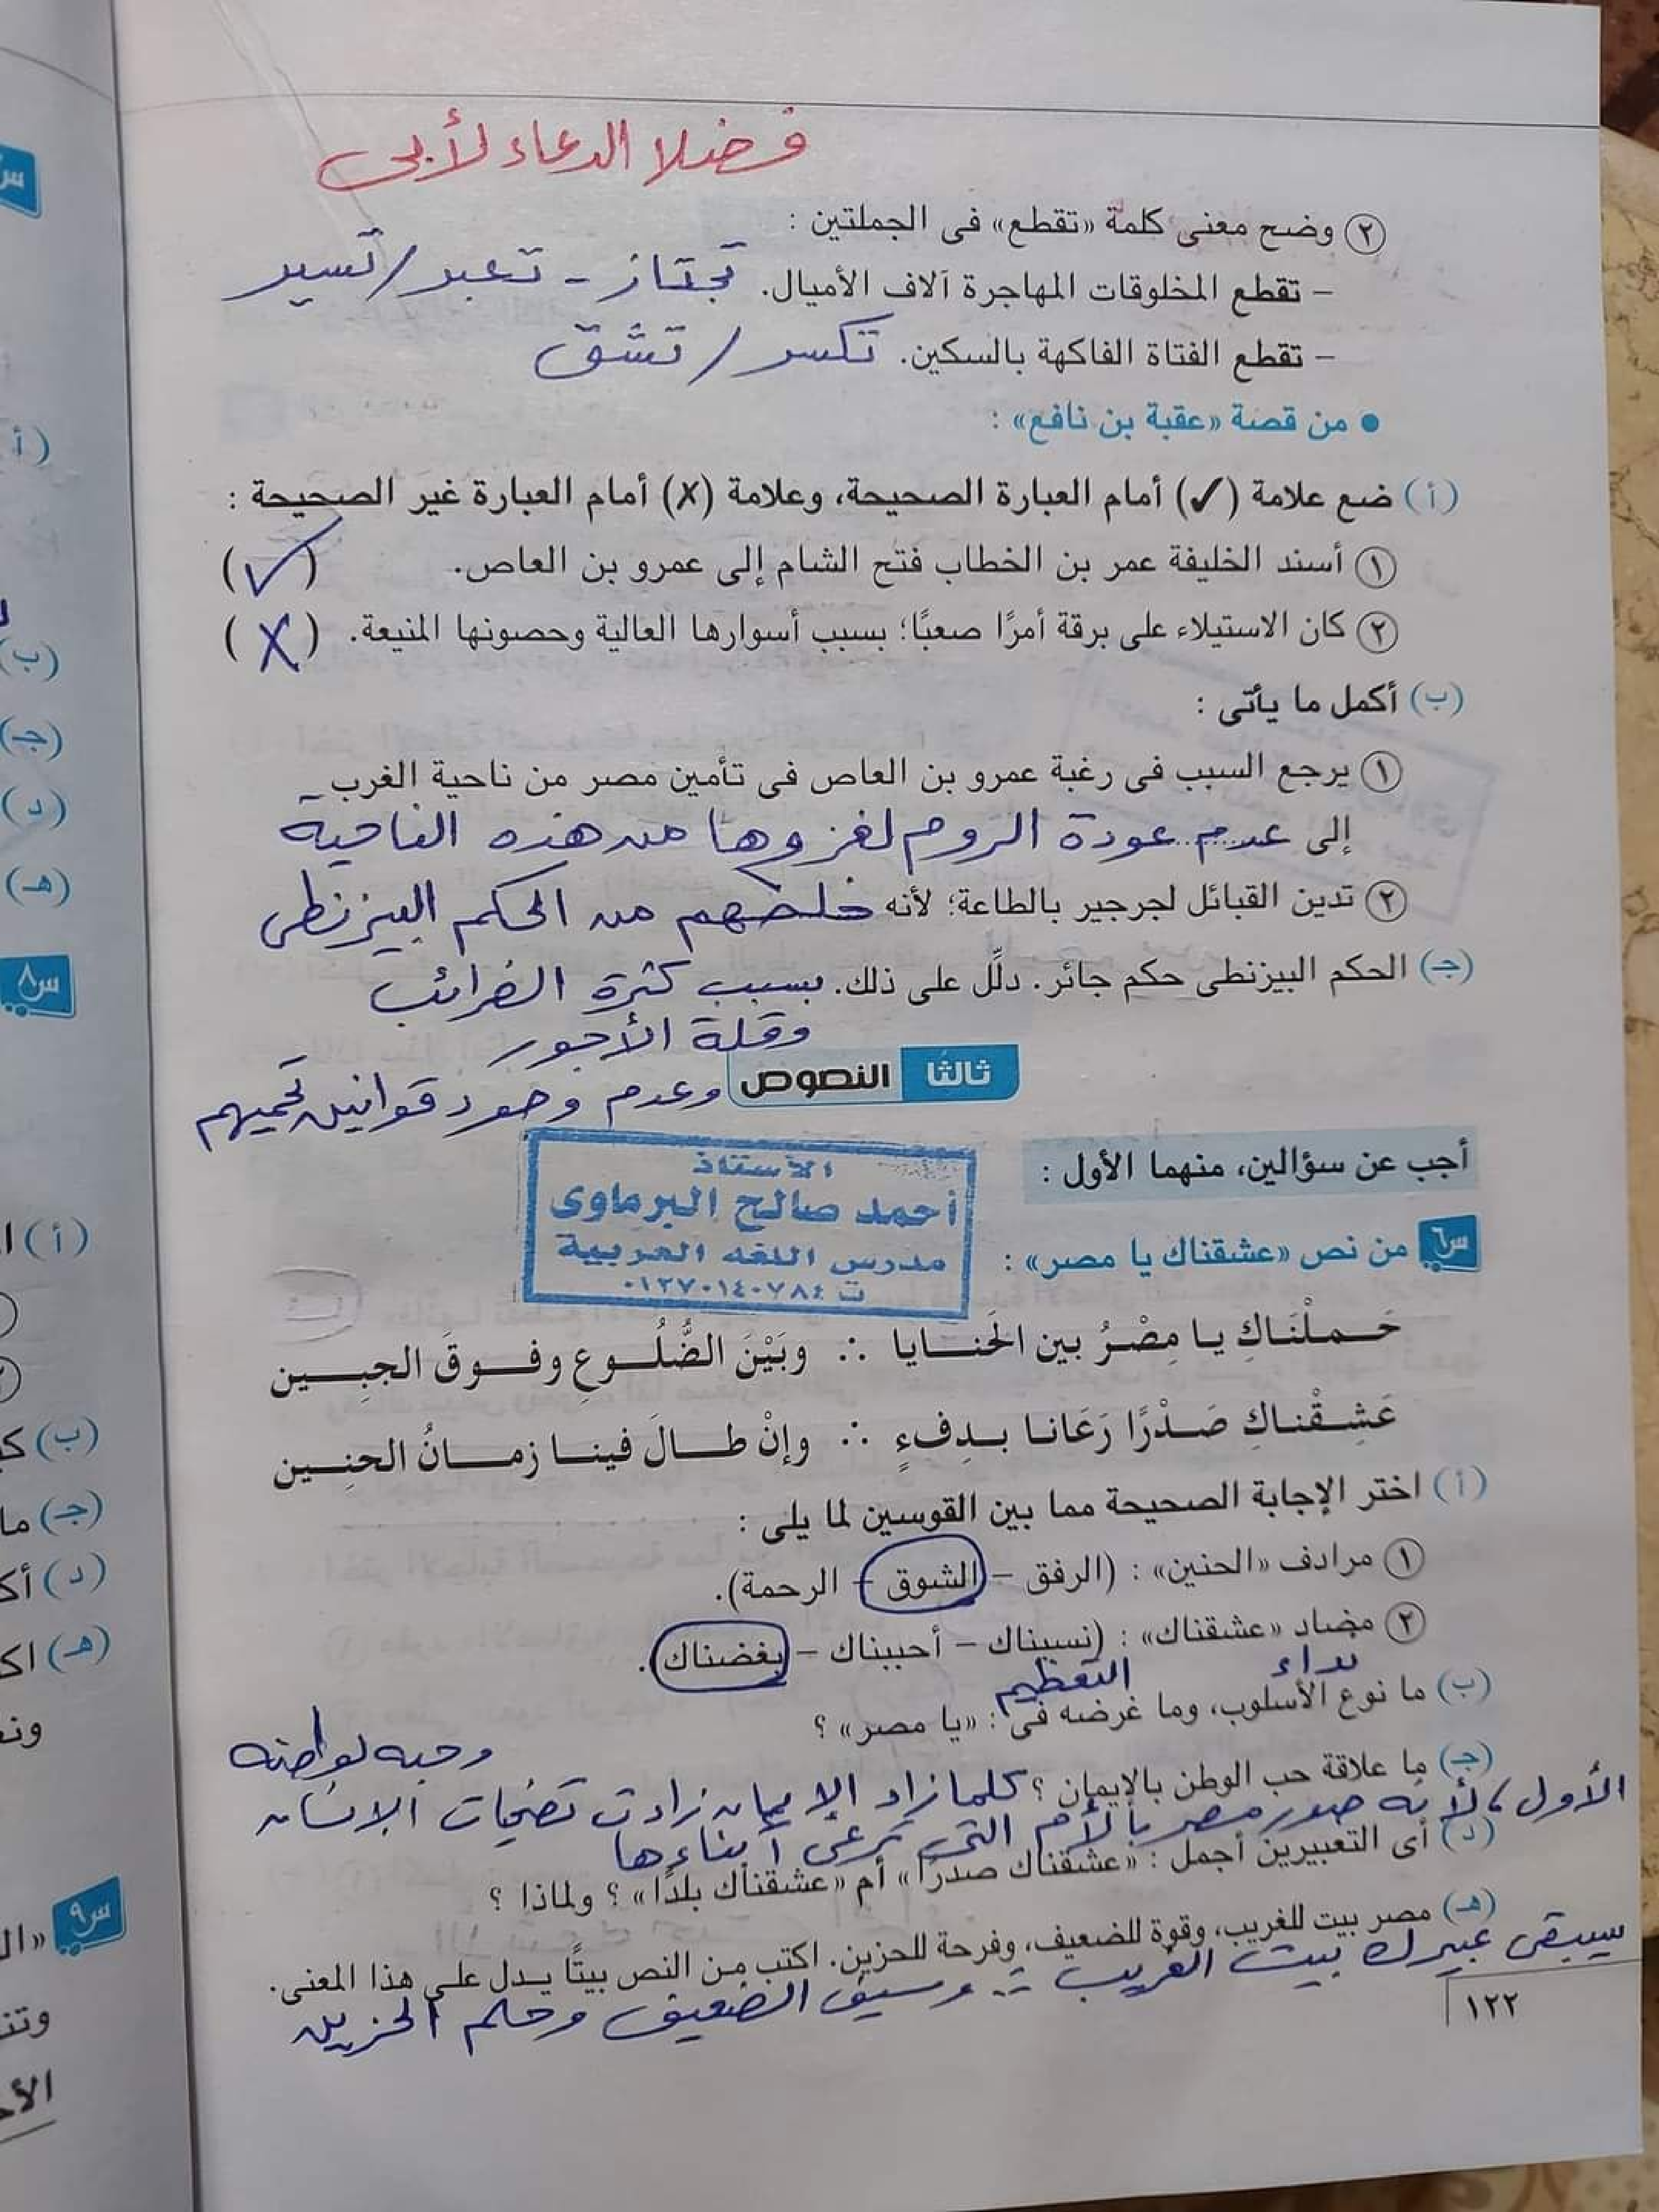 فضلا الدعاء لأبى
٢ وضح معنى كلمة «تقطع» فى الجملتين :
– تقطع المخلوقات المهاجرة آلاف الأميال. تجتاز - تعبر / تسير
– تقطع الفتاة الفاكهة بالسكين. تكسر / تشق
• من قصة «عقبة بن نافع» :
(أ) ضع علامة (✓) أمام العبارة الصحيحة، وعلامة (✗) أمام العبارة غير الصحيحة :
١ أسند الخليفة عمر بن الخطاب فتح الشام إلى عمرو بن العاص. (✓)
٢ كان الاستيلاء على برقة أمرًا صعبًا؛ بسبب أسوارها العالية وحصونها المنيعة. (X)
(ب) أكمل ما يأتى :
١ يرجع السبب فى رغبة عمرو بن العاص فى تأمين مصر من ناحية الغرب
إلى عدم عودة الروم لغزوها من هذه الناحية
٢ تدين القبائل لجرجير بالطاعة؛ لأنه خلصهم من الحكم البيزنطى
(جـ) الحكم البيزنطى حكم جائر. دلِّل على ذلك. بسبب كثرة الضرائب
وقلة الأجور
ثالثًا النصوص وعدم وجود قوانين تحميهم
أجب عن سؤالين، منهما الأول :
الأستاذ
أحمد صالح البرماوى
مدرس اللغه العربية
ت ٠١٢٧٠١٤٠٧٨٤
س٦ من نص «عشقناك يا مصر» :
حَـمـلْنَـاكِ يـا مِصْـرُ بين الحَنـــايا ∴ وبَيْنَ الضُّلُــوعِ وفــوقَ الجبِــين
عَشِـقْنـاكِ صَـدْرًا رَعَانـا بـدِفءٍ ∴ وإنْ طــالَ فينــا زمــانُ الحنِــين
(أ) اختر الإجابة الصحيحة مما بين القوسين لما يلى :
١ مرادف «الحنين» : (الرفق – الشوق – الرحمة).
٢ مضاد «عشقناك» : (نسيناك – أحببناك – بغضناك).
نداء التعظيم
(ب) ما نوع الأسلوب، وما غرضه فى : «يا مصر» ؟
وحبه لوطنه
(جـ) ما علاقة حب الوطن بالإيمان ؟ كلما زاد الإيمان زادت تضحيات الإنسان
الأول، لأنه صور مصر بالأم التى ترعى أبناءها
(د) أى التعبيرين أجمل : «عشقناك صدرًا» أم «عشقناك بلدًا» ؟ ولماذا ؟
(هـ) مصر بيت للغريب، وقوة للضعيف، وفرحة للحزين. اكتب من النص بيتًا يـدل علـى هذا المعنى.
سيبقى عبيرك بيت الغريب ∴ وسيف الضعيف وحلم الحزين
١٢٢
(أ)
(ب)
(جـ)
(د)
(هـ)
س٨
(أ)
(ب)
(جـ) ما
(د)
(هـ)
س٩